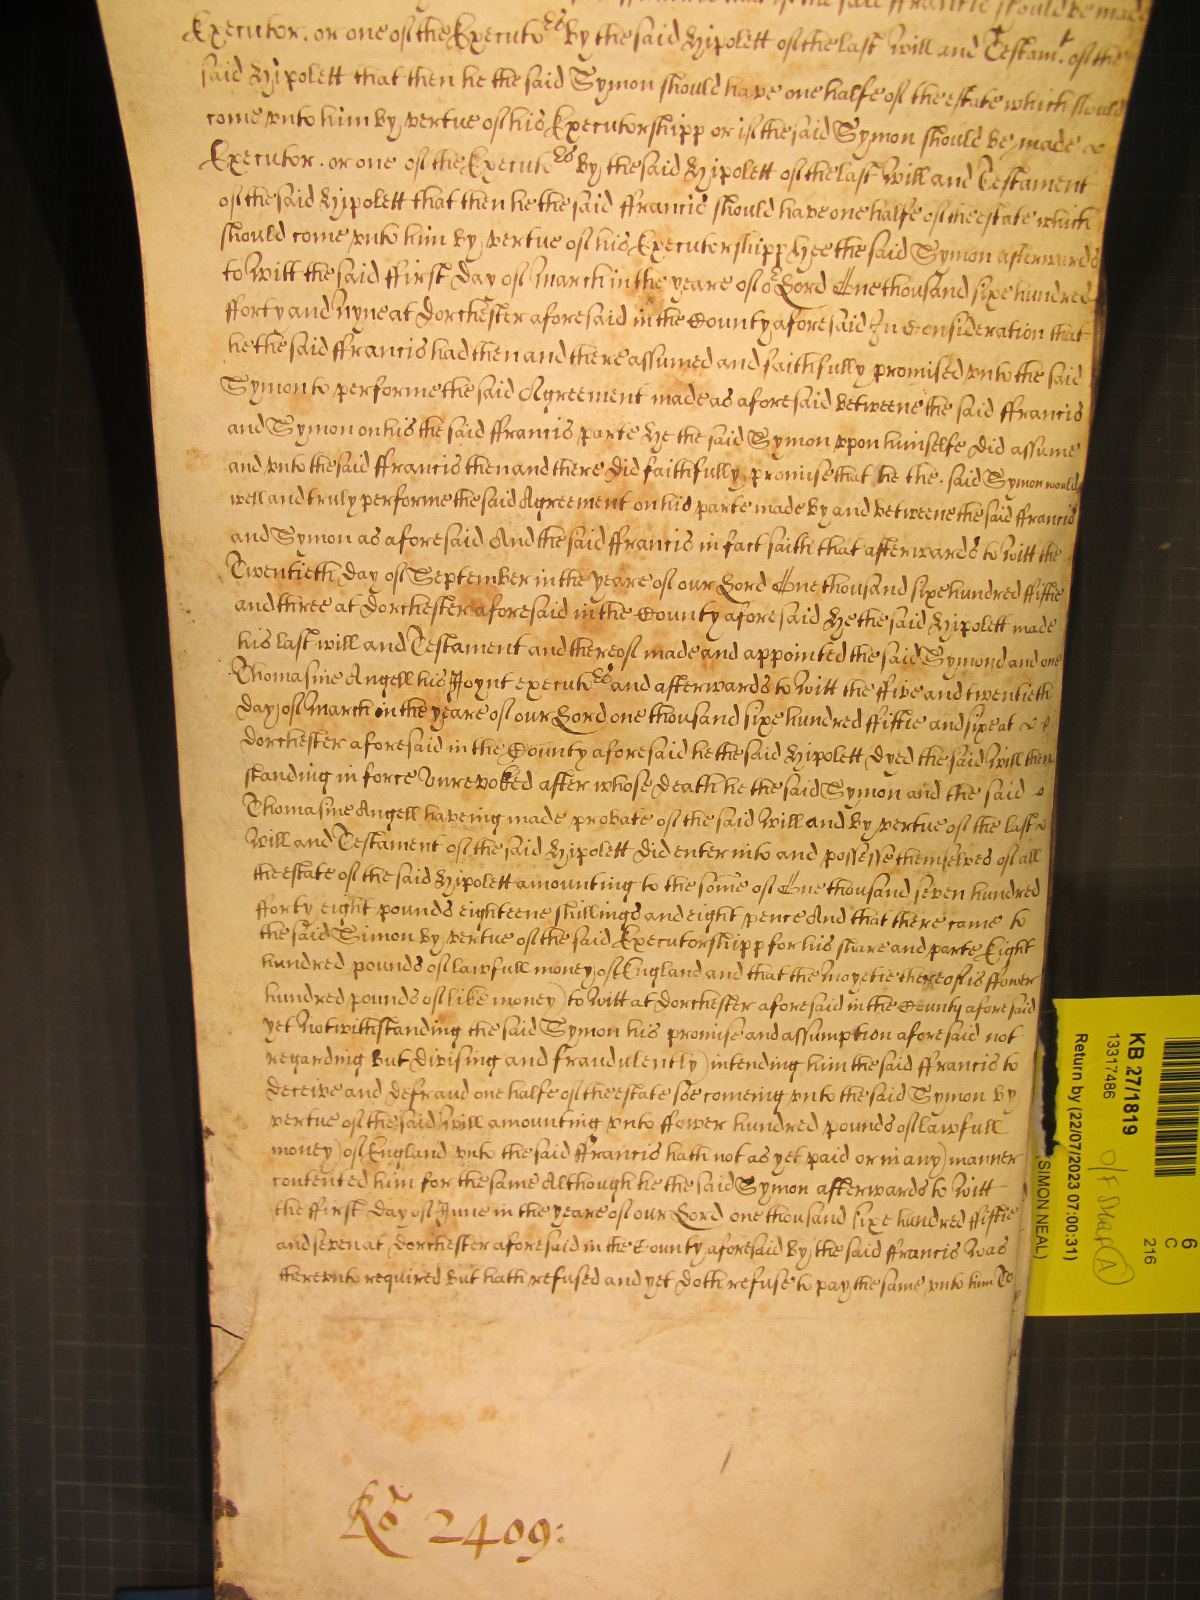 the said ffrancis should be made
Executor. or one of the Executors by the said Hipolett of the last Will and Testamt. of the
said Hipolett that then he the said Symon should have one halfe of the estate which should
come vnto him by vertue of his Executorshipp or if the said Symon should be made
Executor. or one of the Executors by the said Hipolett of the last Will and Testament
of the said Hipolett that then he the said ffrancis should have one halfe of the estate which
should come vnto him by vertue of his Executorshipp Hee the said Symon afterwards
to Witt the said ffirst day of March in the yeare of or Lord One thousand sixe hundred
fforty and Nyne at Dorchester aforesaid in the County aforesaid In Consideration that
he the said ffrancis had then and there assumed and faithfully promised vnto the said
Symon to performe the said Agreement made as aforesaid betweene the said ffrancis
and Symon on his the said ffrancis parte He the said Symon vpon himselfe did assume
and vnto the said ffrancis then and there did faithfully promise that he the. said Symon would
well and truly performe the said Agreement on his parte made by and betweene the said ffrancis
and Symon as aforesaid And the said ffrancis in fact saith that afterwards to Witt the
Twentieth day of September in the yeare of our Lord One thousand sixe hundred ffiftie
and three at Dorchester aforesaid in the County aforesaid He the said Hipolett made
his last will and Testament and thereof made and appointed the said Symond and one
Thomasine Angell his Joynt executors and afterwards to Witt the ffive and twentieth
day of March in the yeare of our Lord one thousand sixe hundred ffiftie and sixe at
Dorchester aforesaid in the County aforesaid he the said Hipolett dyed the said Will then
standing in force Unrevoked after whose death he the said Symon and the said
Thomasine Angell haveing made probate of the said Will and by vertue of the last
Will and Testament of the said Hipolett did enter into and possesse themselves of all
the estate of the said Hipolett amounting to the some of One thousand seven hundred
fforty eight pounds eighteene shillings and eight pence And that there came to
the said Simon by vertue of the said Executorshipp for his share and parte Eight
hundred pounds of lawfull money of England and that the moyetie thereof is ffower
hundred pounds of like money to Witt at Dorchester aforesaid in the County aforesaid
yet Notwithstanding the said Symon his promise and assumption aforesaid not
regarding but divising and fraudulently intending him the said ffrancis to
deceive and defraud one halfe of the estate soe comeing vnto the said Symon by
vertue of the said Will amounting vnto ffower hundred pounds of lawfull
money of England vnto the said ffrancis hath not as yet paid or in any manner
contented him for the same Although he the said Symon afterwards to Witt
the ffirst day of June in the yeare of our Lord one thousand sixe hundred ffiftie
and seven at Dorchester aforesaid in the County aforesaid by the said ffrancis was
therevnto required but hath refused and yet doth refuse to pay the same vnto him To
2409:
KB 27/1819
13317486
Return by (22/07/2023 07:00:31)
(SIMON NEAL)
6
C
216